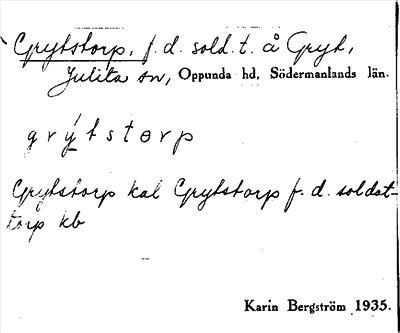 Grytstorp, f. d. sold. t. å Gryt,
Julita sn, Oppunda hd, Södermanlands län.
grýtstɵrp
Grytstorp kal Grytstorp f. d. soldat-
torp kb
Karin Bergström 1935.